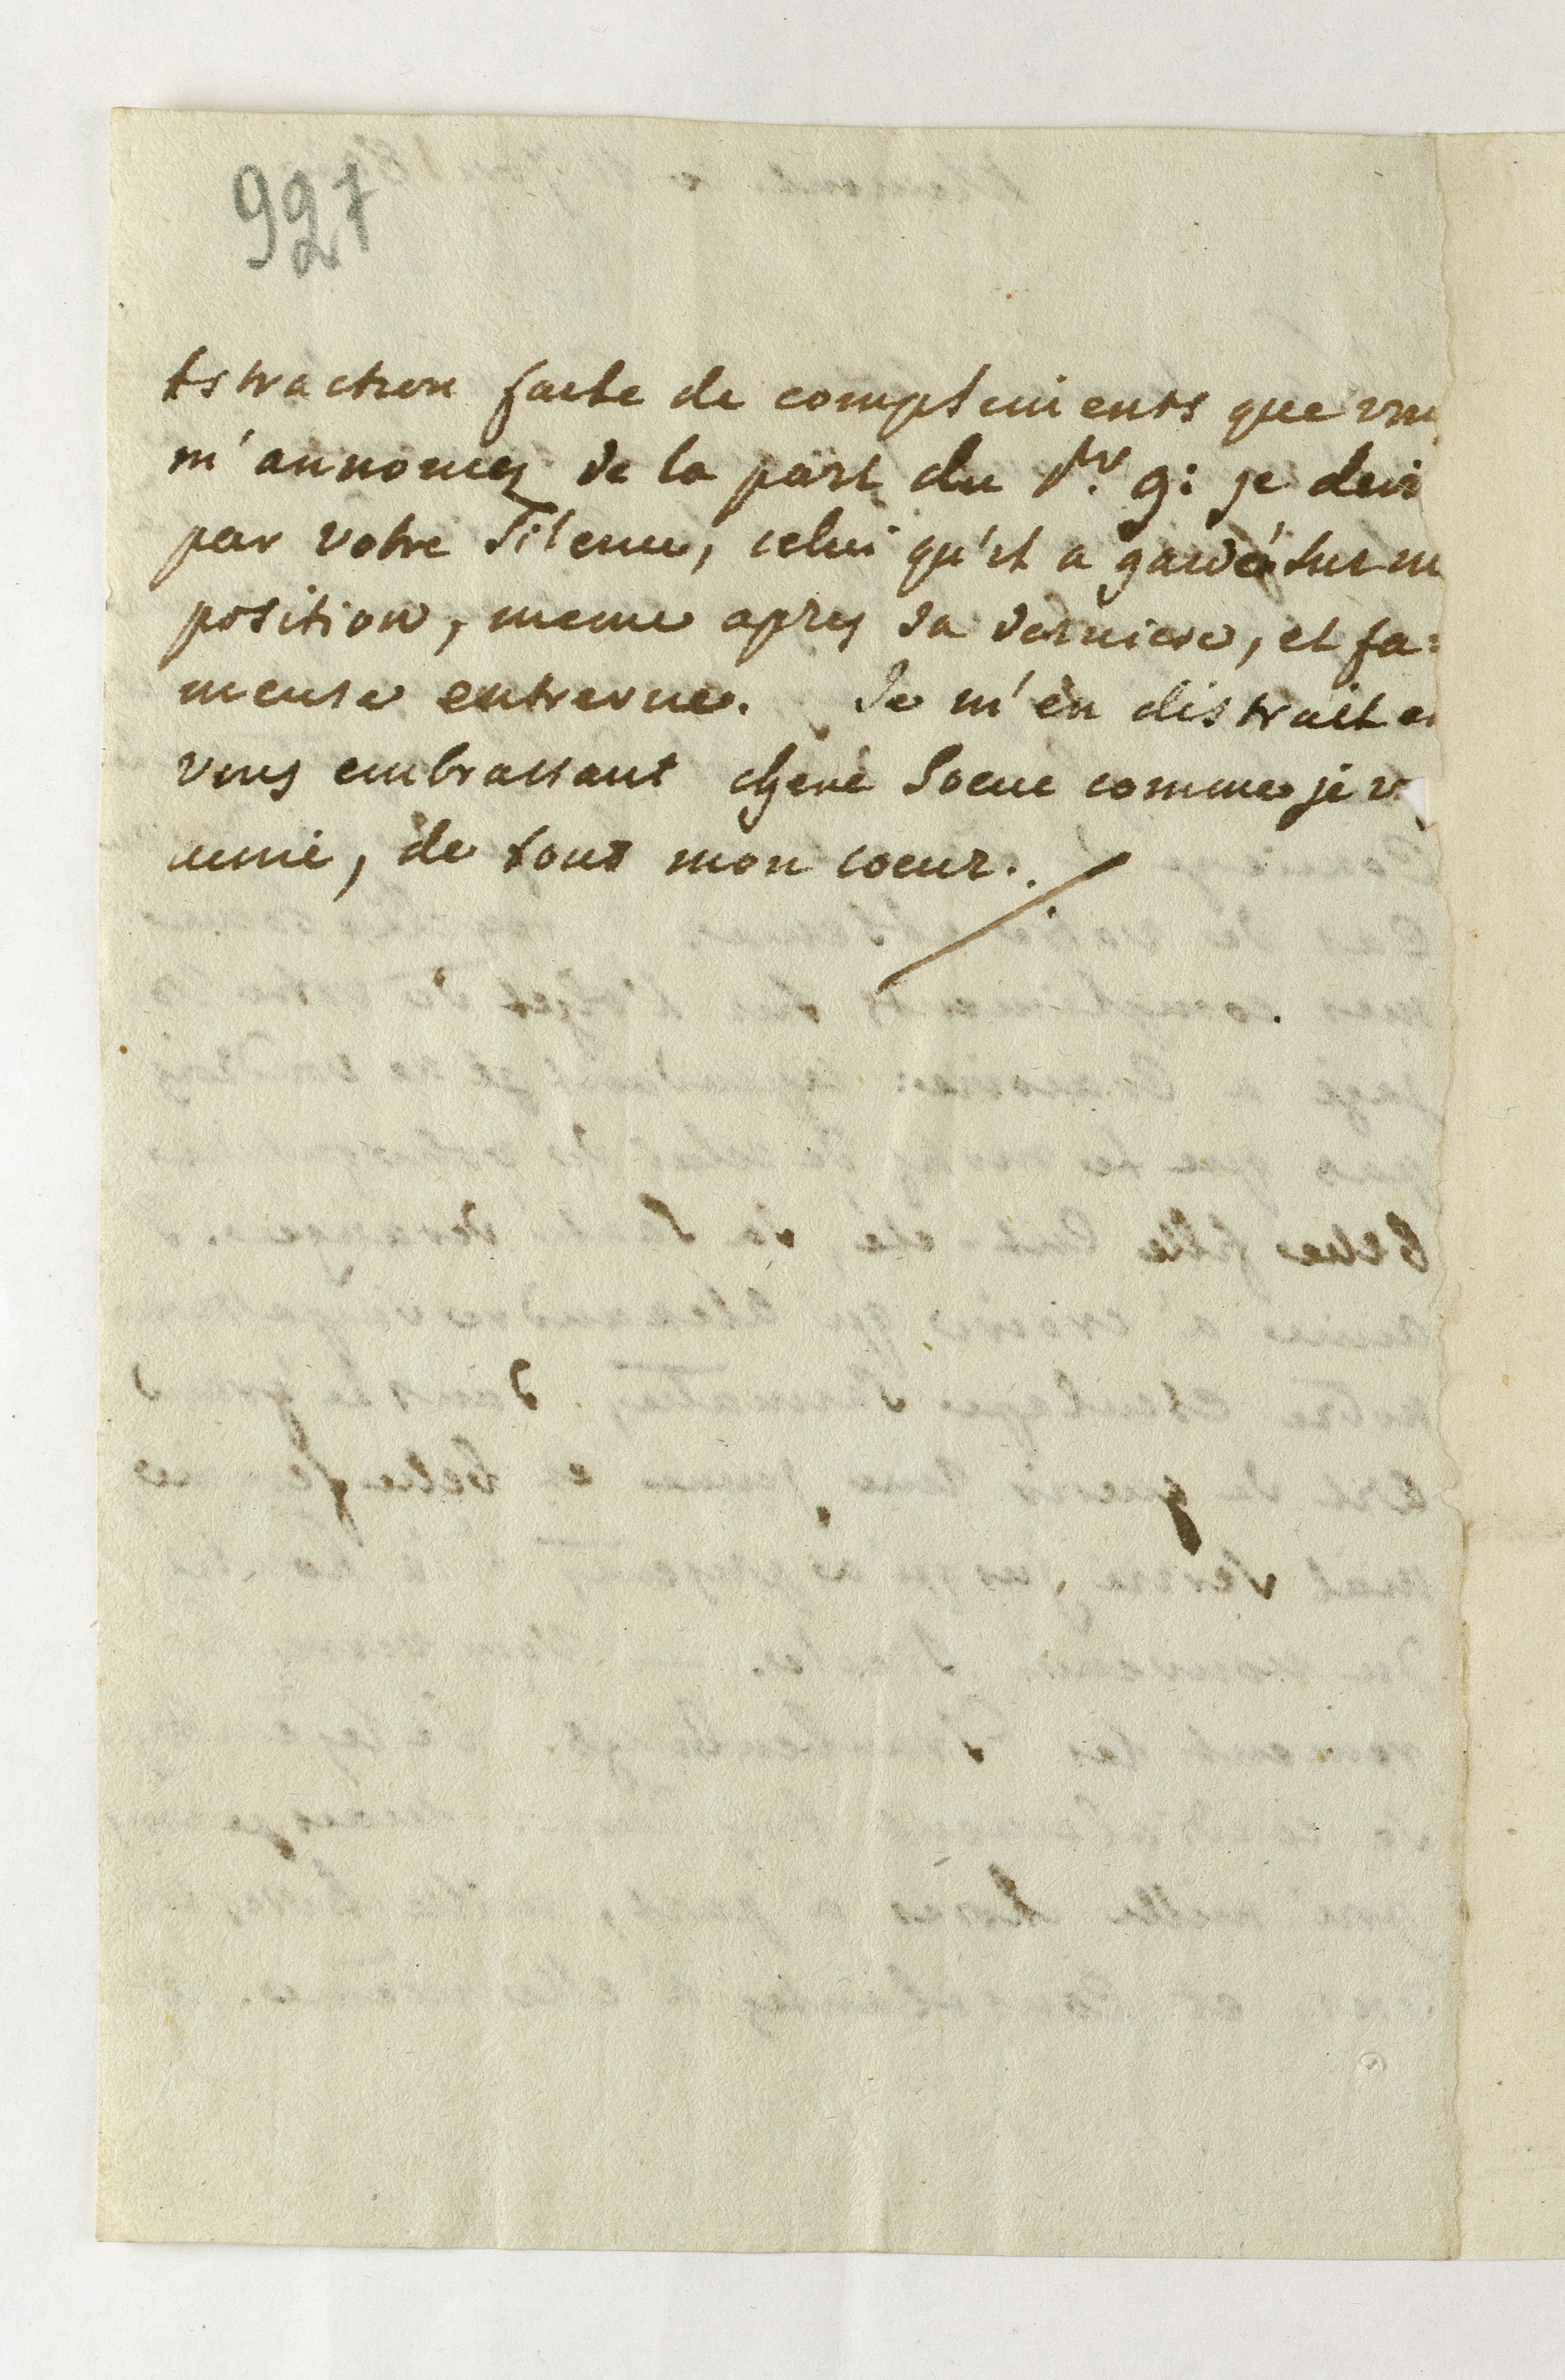 927
bstraction faite de compliments que vou
m'annoncez de la part du Pr. g: je devi
par votre Silence, celui qu'il a gardé sur m
position, meme apres sa derniere, et fa:
meuse entrevue. Je m'en distrait e
vous embrassant chere Soeur comme je v
aime, de tout mon coeur.